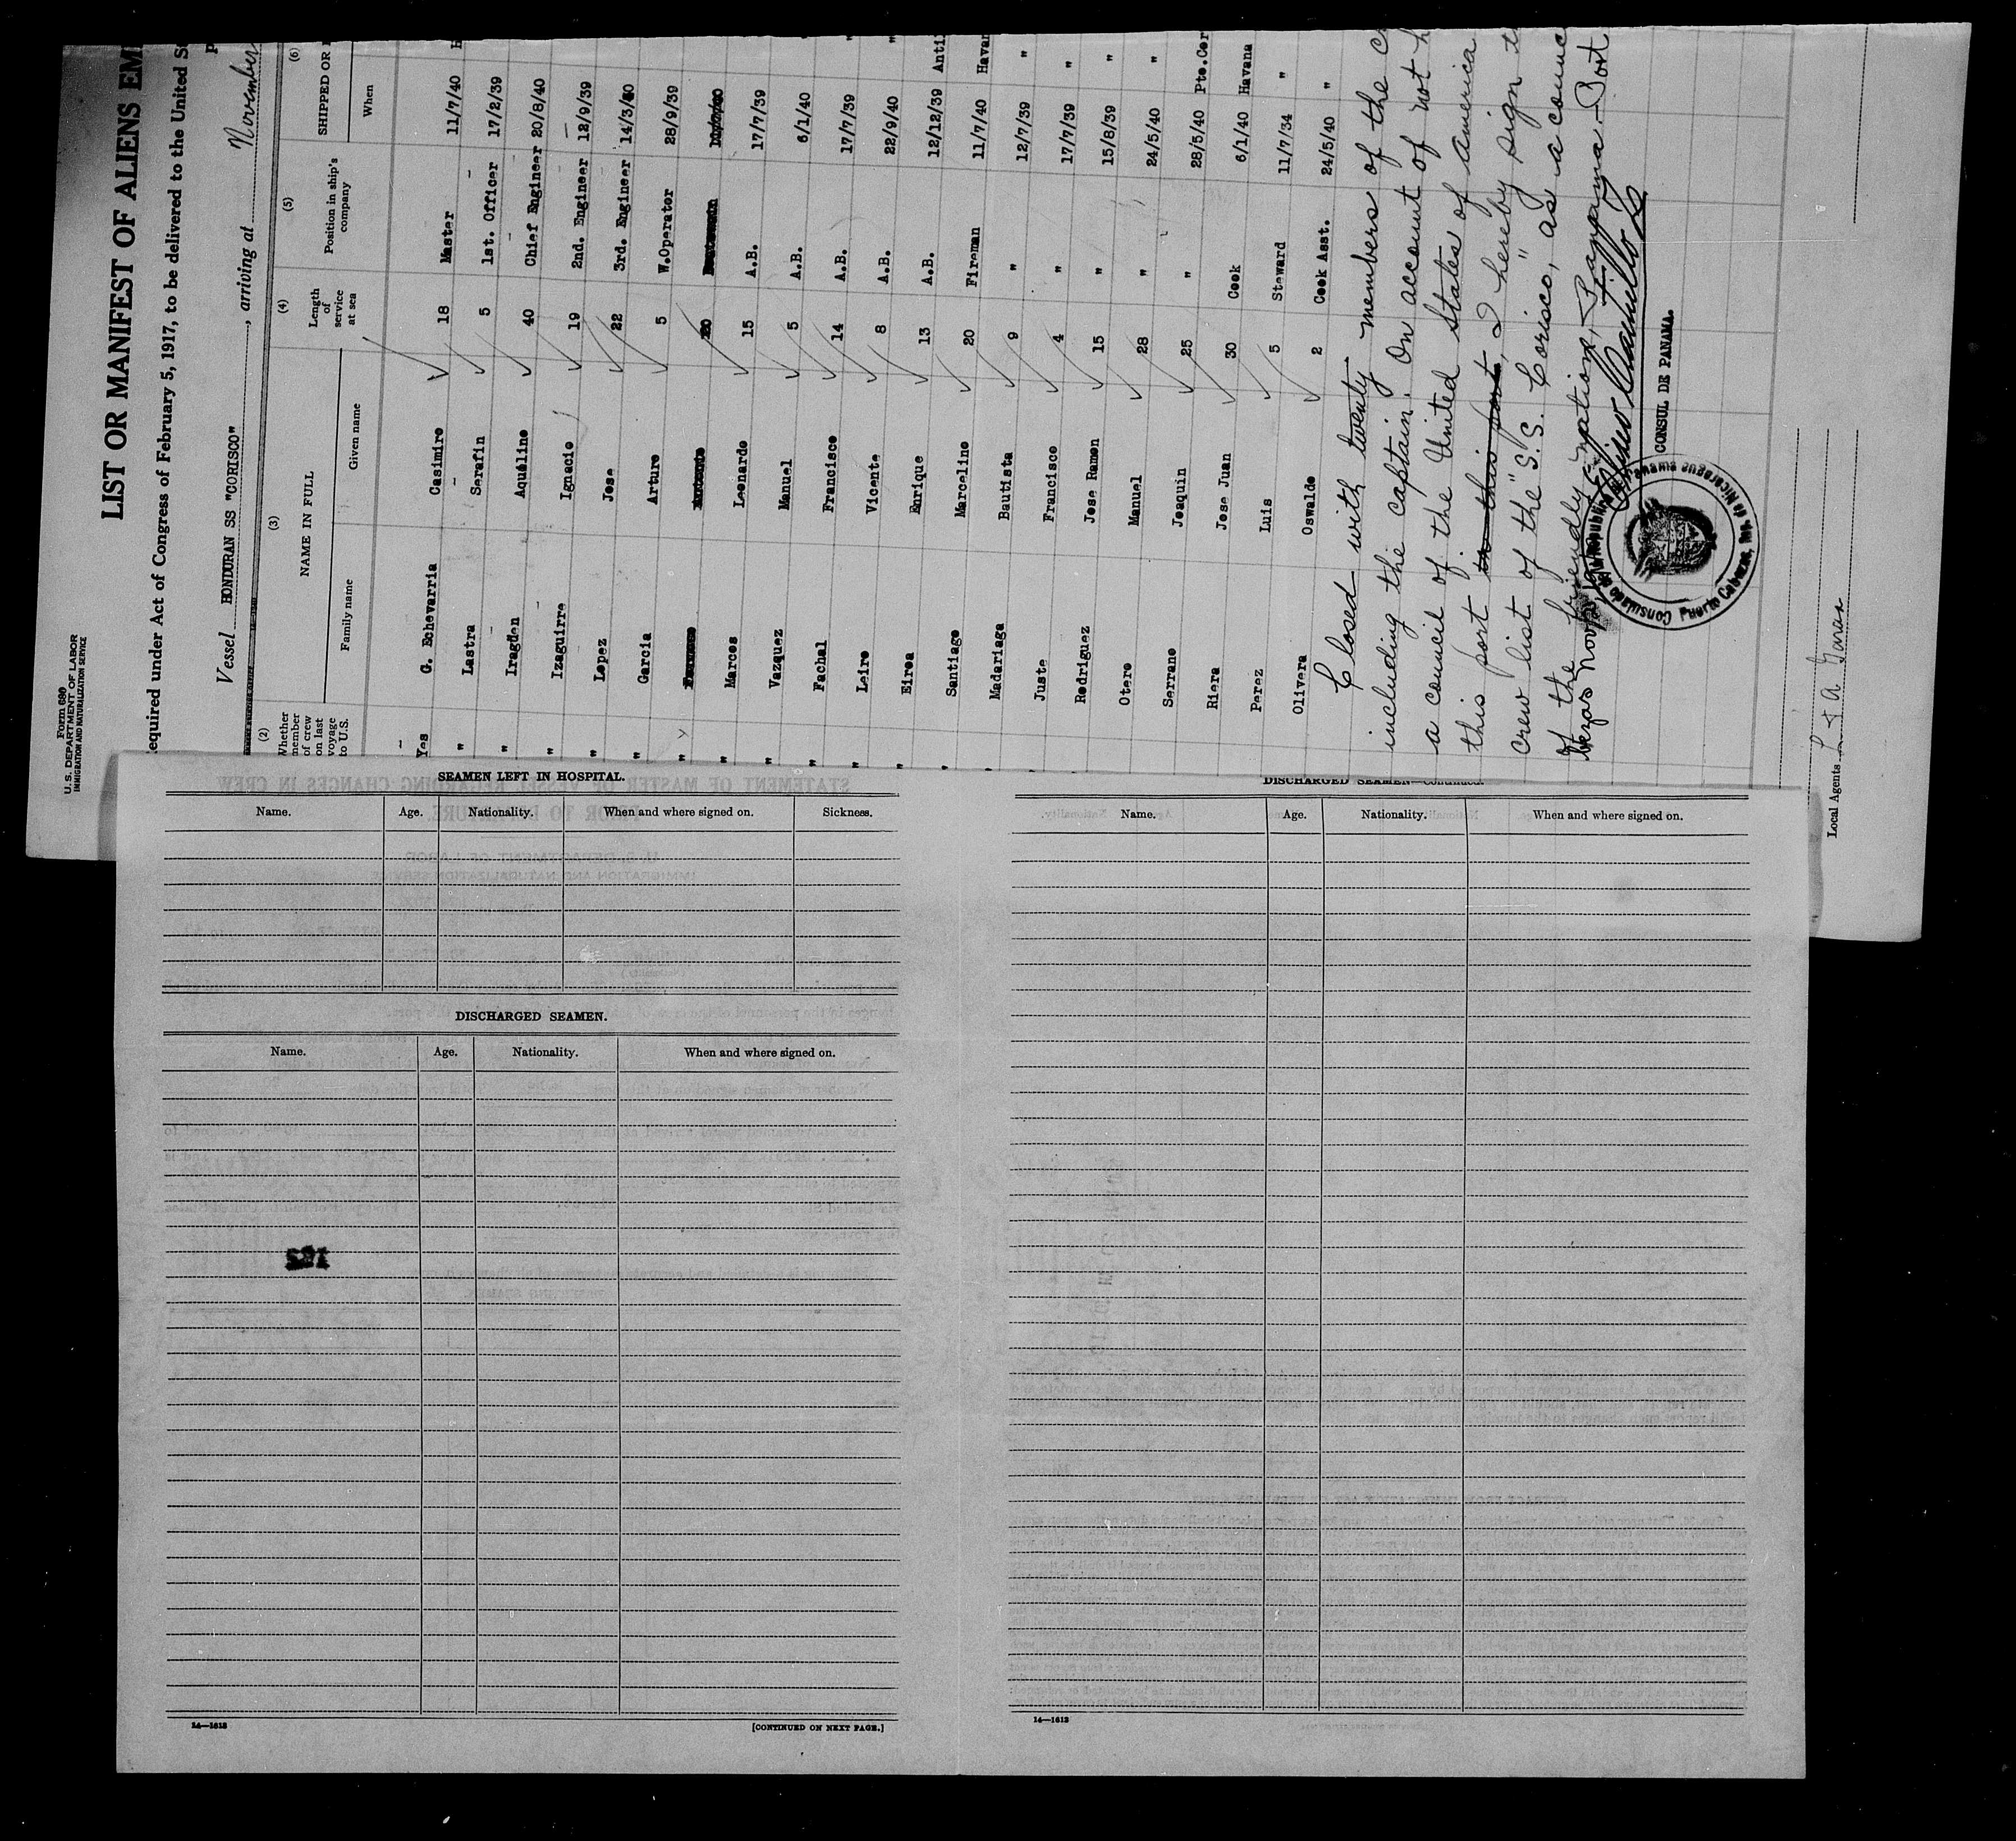 Form 680
U.S. DEPARTMENT OF LABOR
IMMIGRATION AND NATURALIZATION SERVICE
LIST OR MANIFEST OF ALIENS EM
equired under Act of Congress of February 5, 1917, to be delivered to the United St
Vessel HONDURAN SS "CORISCO", arriving at November
(2) (3) (4) (5) (6)
Whether member of crew on last voyage to U.S. NAME IN FULL Length of service at sea Position in ship's company SHIPPED OR
Family name Given name When
Yes G. Echevarria Casimiro 18 Master 11/7/40
" Lastra Serafin 5 1st. Officer 17/2/39
" Iragden Aquéline 40 Chief Engineer 20/8/40
" Izaguirre Ignacio 19 2nd. Engineer 12/9/39
" Lopez Jose 22 3rd. Engineer 14/3/40
" Garcia Arturo 5 W.Operator 28/9/39
" 20
" Marcos Leonardo 15 A.B. 17/7/39
" Vazquez Manuel 5 A.B. 6/1/40 "
" Fachal Francisco 14 A.B. 17/7/39 "
" Leiro Vicente 8 A.B. 22/9/40 "
" Eirea Enrique 13 A.B. 12/12/39 Antil
" Santiago Marcelino 20 Fireman 11/7/40 Havan
" Madariaga Bautista 9 " 12/7/39 "
Juste Francisco 4 " 17/7/39 "
Rodriguez Jose Ramon 15 " 15/8/39 "
Otero Manuel 28 " 24/5/40 "
Serrano Joaquin 25 " 28/5/40 Pto.Cor
Riera Jose Juan 30 Cook 6/1/40 Havana
Perez Luis 5 Steward 11/7/34 "
Olivera Oswaldo 2 Cook Asst. 24/5/40 "
Closed with twenty members of the c
including the captain. On account of not h
a council of the United States of America
this port in this port, I hereby sign t
crew list of the "S.S. Corisco," as a counc
of the friendly nation, Panama. Port
bezas Nov
CONSUL DE PANAMA.
Consulado de la Republica de Panama
Puerto Cabezas, Rep. de Nicaragua
Local Agents
SEAMEN LEFT IN HOSPITAL.
Name. Age. Nationality. When and where signed on. Sickness.
DISCHARGED SEAMEN.
Name. Age. Nationality. When and where signed on.
14—1613
[CONTINUED ON NEXT PAGE.]
DISCHARGED SEAMEN—Continued.
Name. Age. Nationality. When and where signed on.
14—1613